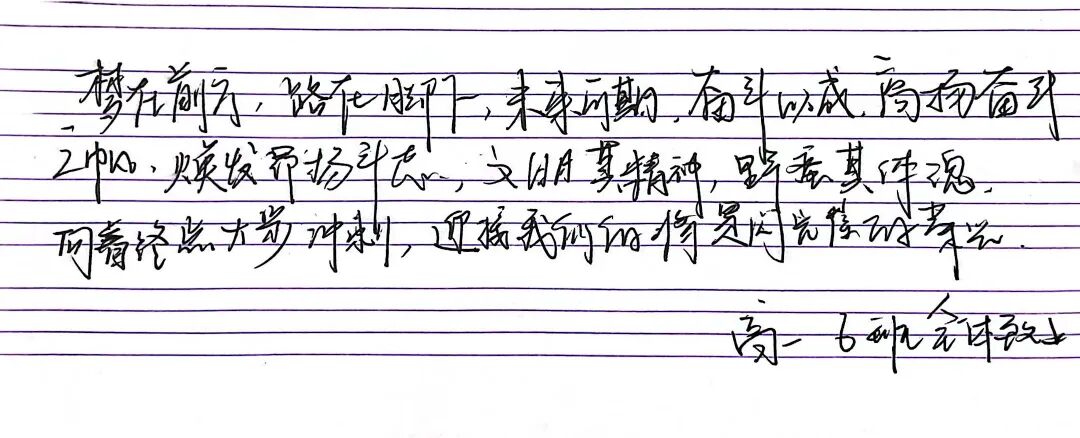 梦在前方，路在脚下，未来可期，奋斗以成，高扬奋斗
之帆，焕发昂扬斗志，文明其精神，野蛮其体魄，
向着终点大步冲刺，迎接我们的将是闪亮的
高一6班全体致上